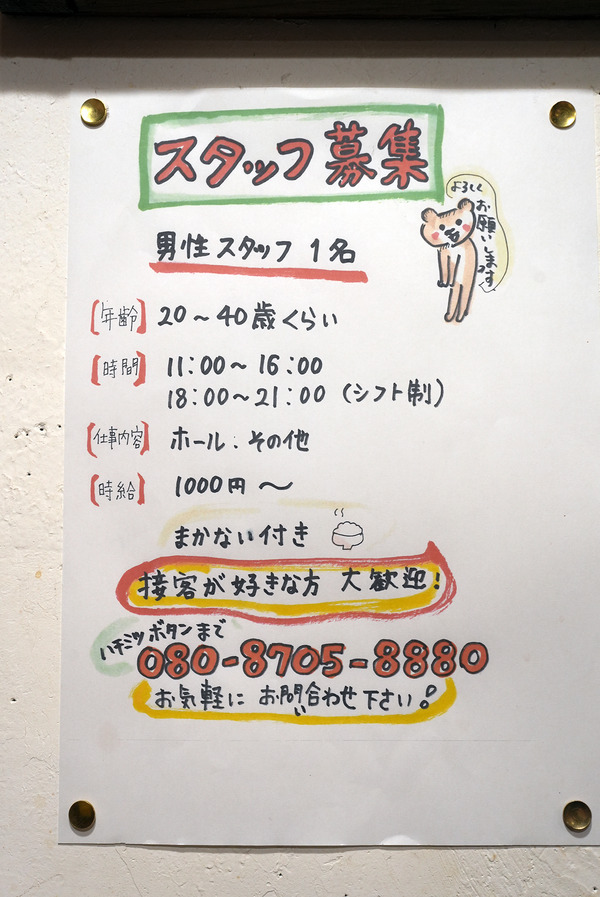 スタッフ募集
よろしく
お願いします
男性スタッフ 1名
【年齢】 20〜40歳くらい
【時間】 11:00〜16:00
18:00〜21:00 (シフト制)
【仕事内容】 ホール・その他
【時給】 1000円〜
まかない付き
接客が好きな方 大歓迎!
ハチミツボタンまで
080-8705-8880
お気軽に お問い合わせ下さい!